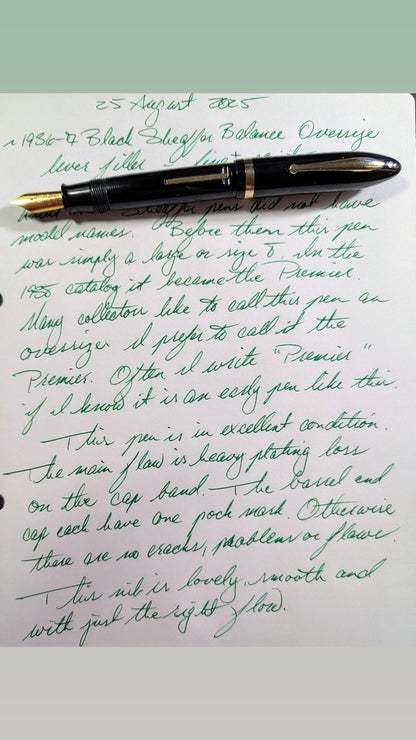 25 August 2025
~1936-7 Black Sheaffer Balance Oversize
lever filler
Sheaffer pens did not have
model names. Before then this pen
was simply a large or size 8. In the
catalog it became the Premier.
Many collectors like to call this pen an
oversize. I prefer to call it the
Premier. Often I write "Premier"
if I know it is an early pen like this.
This pen is in excellent condition.
The main flaw is heavy plating loss
on the cap band. The barrel and
cap each have one pock mark. Otherwise
there are no cracks, problems or flaws.
This nib is lovely, smooth and
with just the right flow.